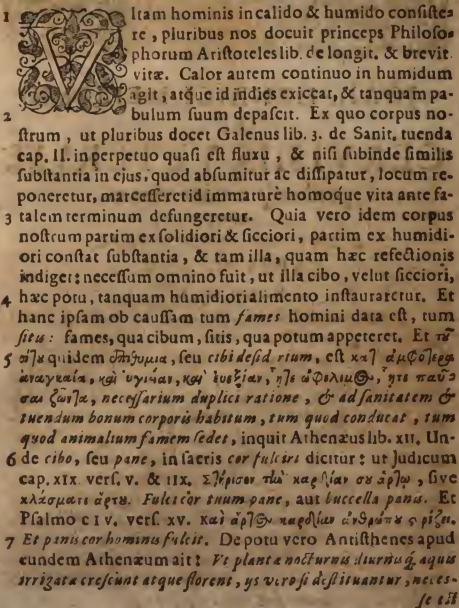 1 VItam hominis in calido & humido consiste-
re, pluribus nos docuit princeps Philoso-
phorum Aristoteles lib. de longit. & brevit.
vitæ. Calor autem continuo in humidum
agit, atque id indies exiccat, & tanquam pa-
2 bulum suum depascit. Ex quo corpus no-
strum, ut pluribus docet Galenus lib. 3. de Sanit. tuenda
cap. II. in perpetuo quasi est fluxu, & nisi subinde similis
substantia in ejus, quod absumitur ac dissipatur, locum re-
poneretur, marcesseret id immaturè homoque vita ante fa-
3 talem terminum defungeretur. Quia vero idem corpus
nostrum partim ex solidiori & sicciori, partim ex humidi-
ori constat substantia, & tam illa, quam hæc refectionis
indiget: necessum omnino fuit, ut illa cibo, velut sicciori,
4 hæc potu, tanquam humidiori alimento instauraretur. Et
hanc ipsam ob caussam tum fames homini data est, tum
sitis: fames, qua cibum, sitis, qua potum appeteret. Et τῦ
5 σίτυ quidem ἐπιθυμία, seu cibi desid rium, est κατ' ἀμφότερα
ἀναγκαία, καὶ ὑγιείαν, καὶ εὐεξίαν, ἥτε ὠφέλιμος, ἥτε παῦ-
σαι ζῶντα, necessarium duplici ratione, & ad sanitatem &
tuendum bonum corporis habitum, tum quod conducat, tum
quod animalium famem sedet, inquit Athenæus lib. XII. Un-
6 de cibo, seu pane, in sacris cor fulciri dicitur: ut Judicum
cap. XIX. vers. V. & IIX. Στήρισον τὴν καρδίαν σου ἄρτῳ, sive
κλάσματι ἄρτυ. Fulci cor tuum pane, aut buccella panis. Et
Psalmo CIV. vers. XV. καὶ ἄρτος καρδίαν ἀνθρώπυ στηρίζει.
7 Et panis cor hominis fulcit. De potu vero Antisthenes apud
eundem Athenæum ait: Vt plantæ nocturnis diurnisq, aquis
irrigatæ crescunt atque florent, ijs vero si destituantur, neces-
se est